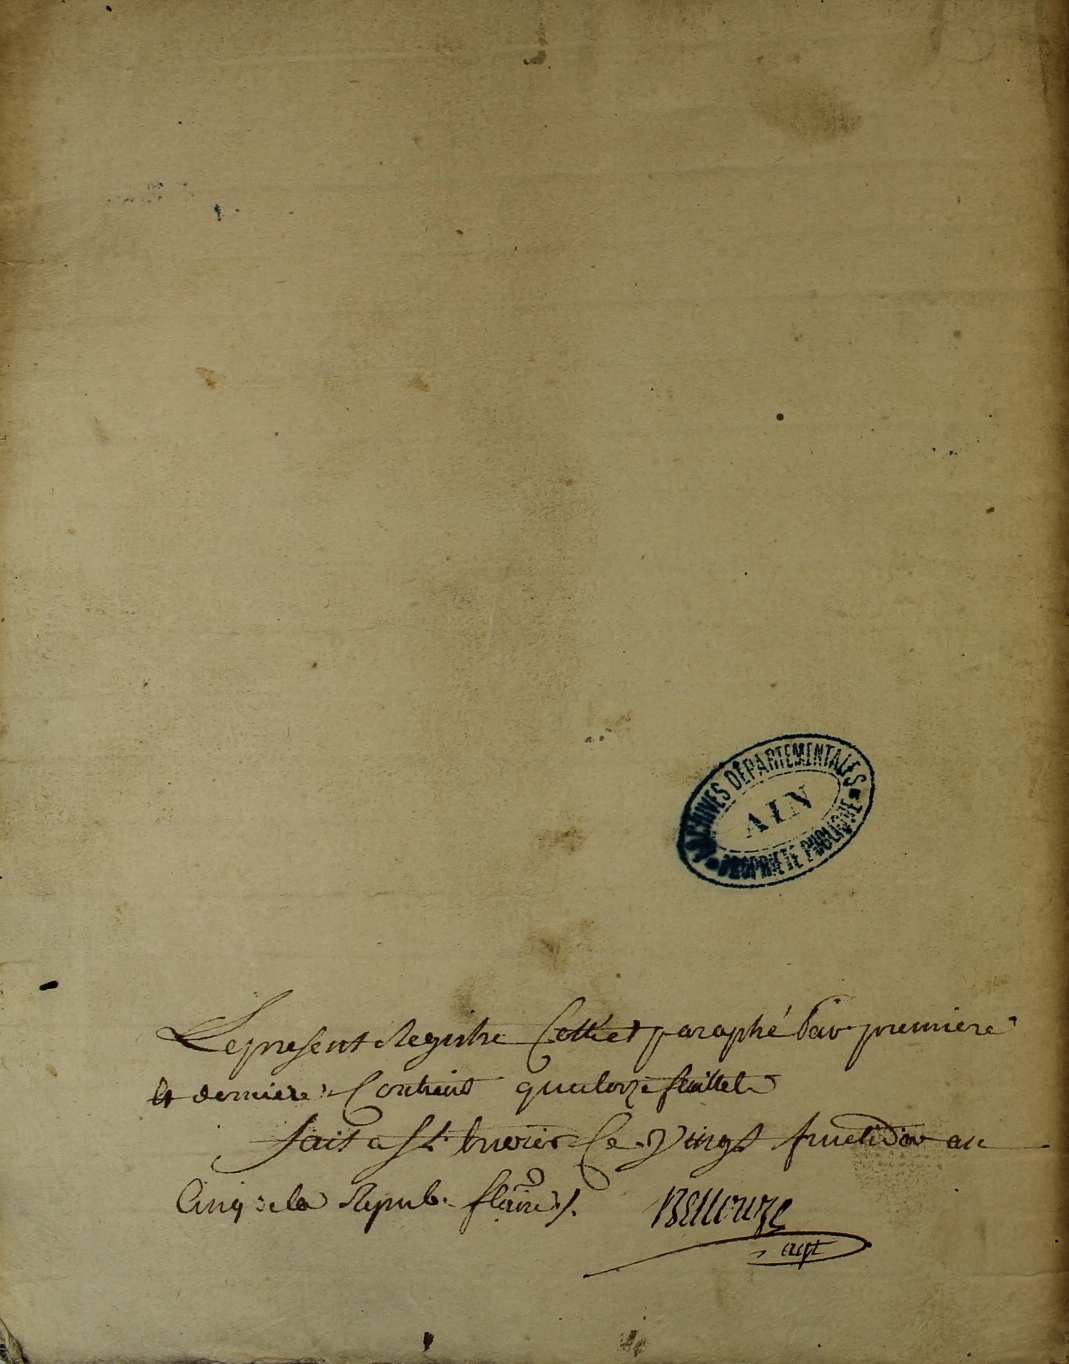 ARCHIVES DÉPARTEMENTALES
AIN
PROPRIÉTÉ PUBLIQUE
Le present Registre Cotté et paraphé par premiere
et derniere Contient quatorze feuillets
fait a St trivier Ce Vingt fructidor an
Cinq de la Repub. fçaise
agt